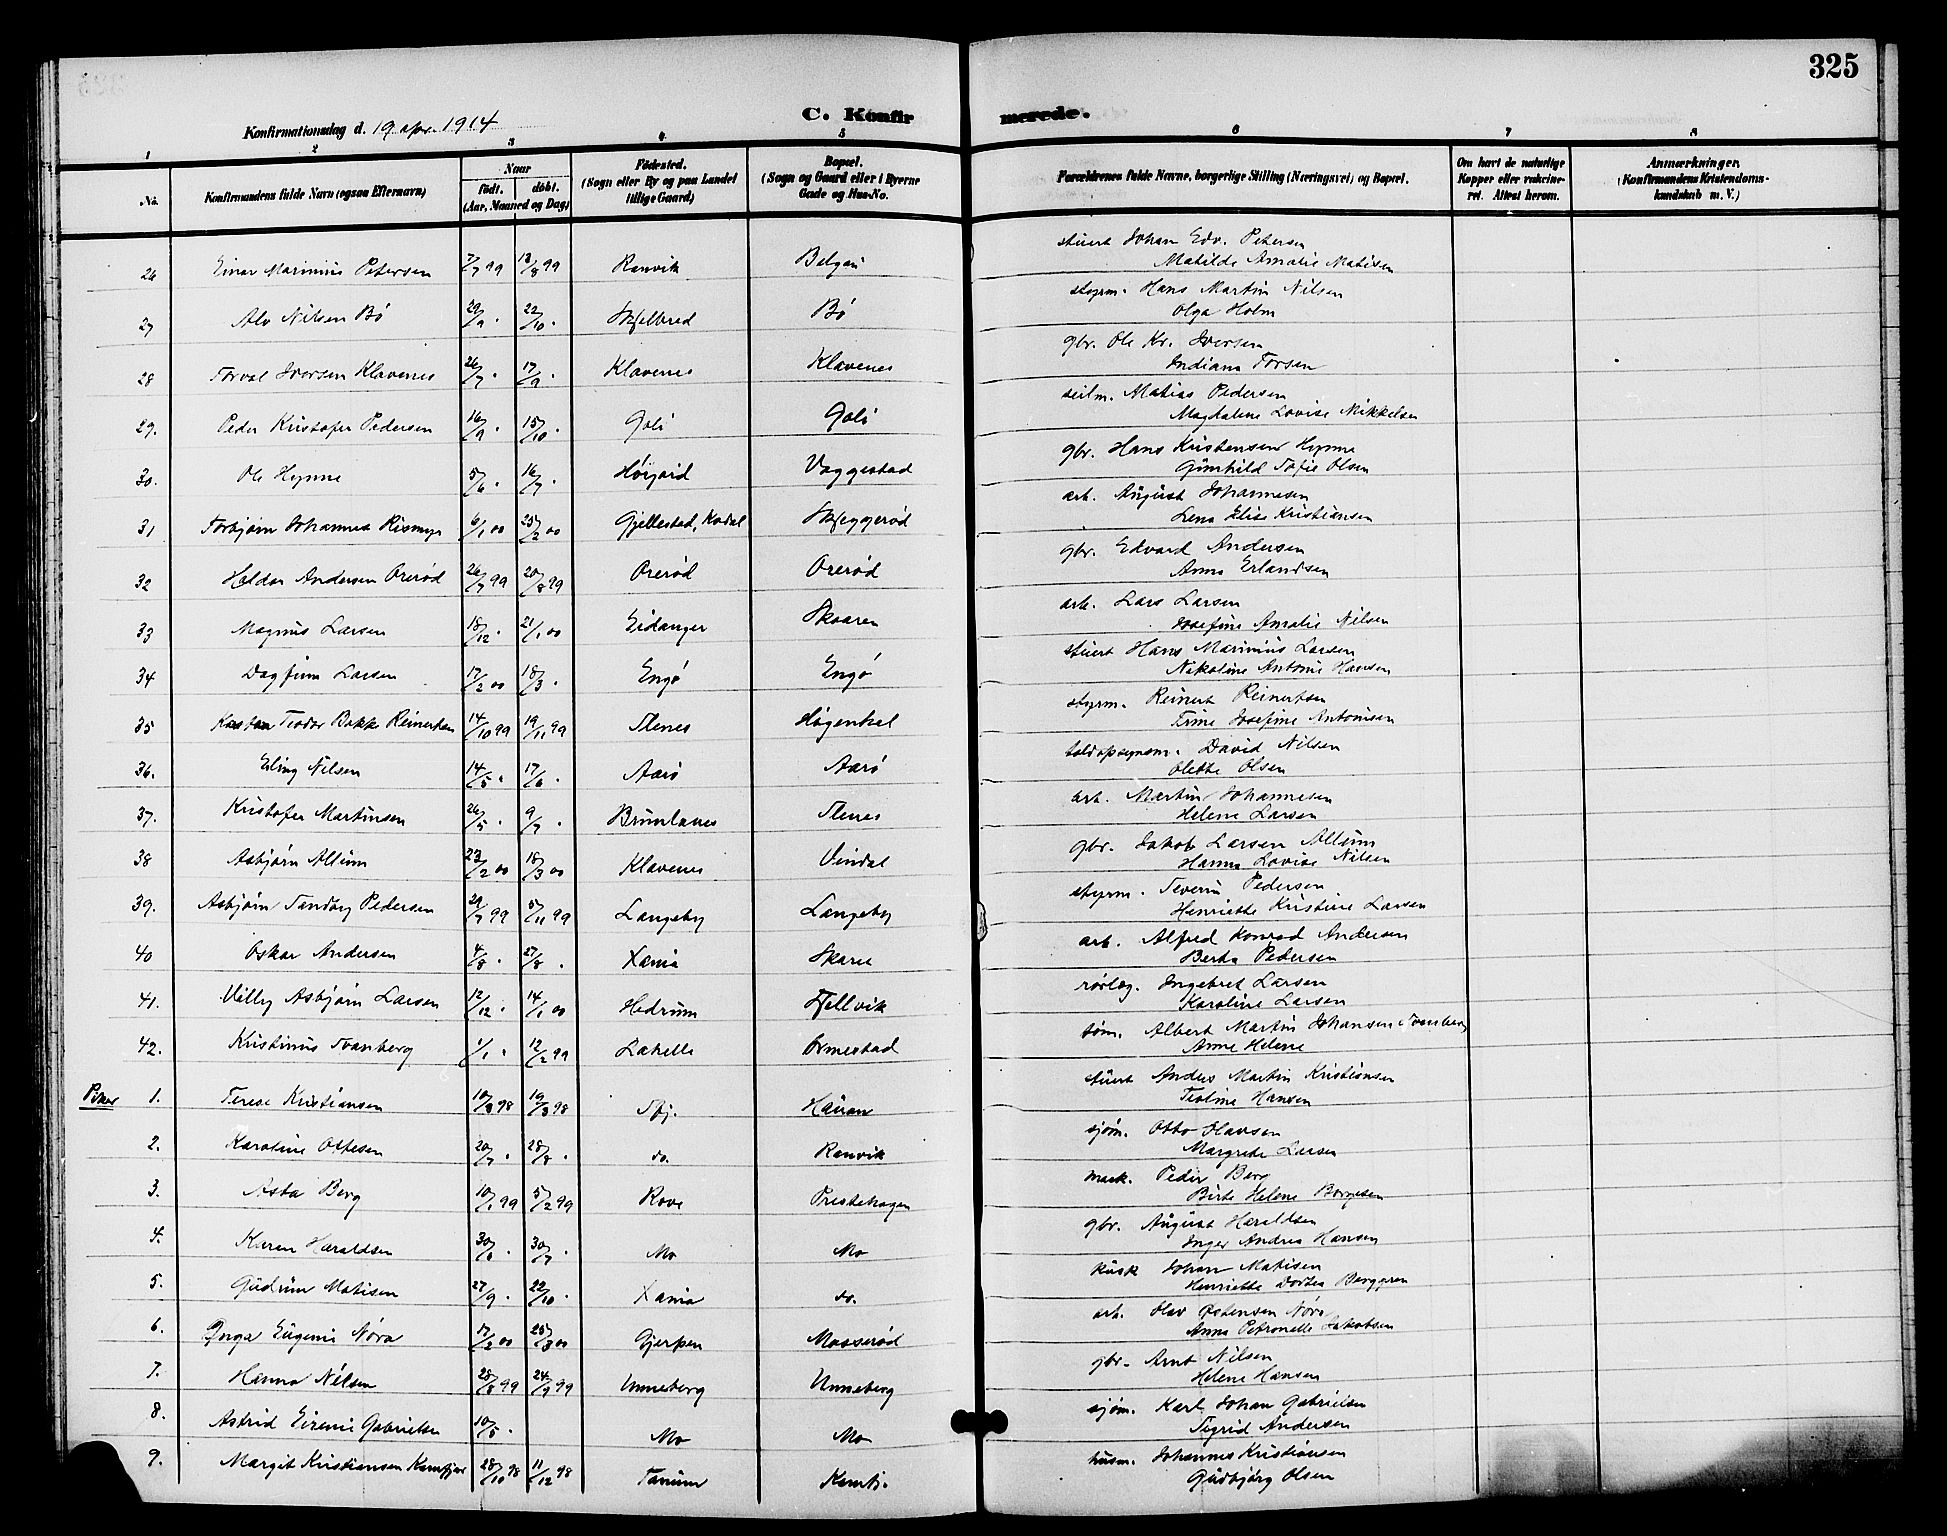 325
C. Konfirmerede.
Konfirmationsdag d. 19 apr. 1914
1 2 3 4 5 6 7 8
No. Konfirmandens fulde Navn (ogsaa Efternavn) Naar født. døbt. (Aar, Maaned og Dag) Fødested. (Sogn eller By og paa Landet tillige Gaard) Bopæl. (Sogn og Gaard eller i Byerne Gade og Hus-No. Forældrenes fulde Navne, borgerlige Stilling (Næringsvei) og Bopæl. Om havt de naturlige Kopper eller vaksineret. Attest herom. Anmærkninger. (Konfirmandens Kristendomskundskab m. V.)
26 Einar Marinius Petersen 7/7 99 13/8 99 Ranvik stuert Johan Edv. Petersen
Matilde Amalie Matisen
27 Alv Nilsen Bø 29/9 . 22/10 . Skjelbred Bø styrm. Hans Martin Nilsen
Olga Holm
28 Torval Iversen Klavenes 26/7 . 17/9 . Klavenes Klavenes gbr. Ole Kr. Iversen
Indiana Torsen
29. Peder Kristofer Pedersen 16/9 . 15/10 . Goli Goli seilm. Matias Pedersen
Magdalene Lovise Mikkelsen
30. Ole Hynne 5/6 . 16/7 . Høijord Vaggestad gbr. Hans Kristensen Hynne
Gunhild Sofie Olsen
31 Torbjørn Johannes Rismyr 6/1 00 25/2 00 Gjellestad, Kodal Skjeggerød arb. August Johannesen
Lena Elise Kristiansen
32 Haldor Andersen Orerød 26/7 99 20/8 99 Orerød Orerød gbr. Edvard Andersen
Anna Erlandsen
33 Magnus Larsen 18/12 . 21/1 00 Eidanger Skaaren arb. Lars Larsen
Josefine Amalie Nilsen
34 Dagfinn Larsen 17/2 00 18/3 . Engø Engø stuert Hans Marinius Larsen
Nikoline Antonie Hansen
35 Teodor Bakke Reinertsen 14/10 99 19/11 99 Stenes Høgenhel styrm. Reinert Reinertsen
Trine Josefine Antonisen
36. Erling Nilsen 14/5 . 17/6 . Aarø Aarø toldopsynsm. David Nilsen
Olette Olsen
37. Kristofer Martinsen 26/5 . 9/7 . Brunlanes Stenes arb. Martin Johannesen
Helene Larsen
38 Asbjørn Allum 23/2 00 18/3 00 Klavenes Vindal gbr. Jakob Larsen Allum
Hanna Lovise Nilsen
39. Asbjørn Sandøy Pedersen 29/7 99 5/11 99 Langeby Langeby styrm. Severin Pedersen
Henriette Kristine Larsen
40 Oskar Andersen 4/8 . 27/8 . Xania Skaree arb. Alfred Konrad Andersen
Berta Pedersen
41. Villy Asbjørn Larsen 12/12 . 14/1 00 Hedrum Fjellvik rørlæg. Ingebret Larsen
Karoline Larsen
42. Kristinus Svanberg 1/1 . 12/2 99 Lahelle Ormestad tøm. Albert Martin Johansen Svanberg
Anne Helene
Piker 1. Terese Kristiansen 10/3 98 19/3 98 Sfj. Hauan stuert Anders Martin Kristiansen
Teoline Hansen
2. Karoline Ottesen 20/7 . 28/8 . do. Ranvik sjøm. Otto Olavsen
Margrete Larsen
3. Asta Berg 10/1 99 5/2 99 Rove Prestehagen mask. Peder Berg
Birte Helene Borgesen
4. Karen Haraldsen 30/6 . 30/7 . Mo Mo gbr. August Haraldsen
Inger Andrea Hansen
5. Gudrun Matisen 27/9 . 22/10 . Xania do. kusk Johan Matisen
Henriette Dortea Berggren
6. Inga Eugenie Nøra 17/2 00 25/3 00 Gjerpen Mosserød arb. Olav Ostensen Nøra
Anna Petronelle Jakobsen
7. Hanna Nilsen 28/8 99 24/9 99 Unneberg Unneberg gbr. Arnt Nilsen
Helene Hansen
8. Astrid Eirenie Gabrielsen 10/5 . Mo Mo sjøm. Karl Johan Gabrielsen
Sigrid Andersen
9. Margit Kristiansen 28/10 98 11/12 98 Tanum husm. Johannes Kristiansen
Gudbjørg Olsen